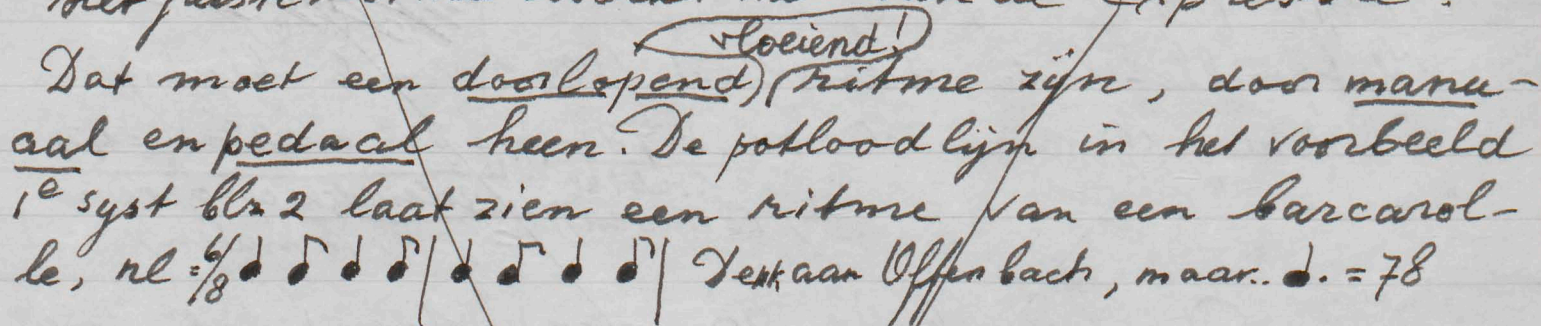 vloeiend!
Dat moet een doorlopend, ritme zijn, door manu-
aal en pedaal heen. De potloodlijn in het voorbeeld
1e syst blz 2 laat zien een ritme van een barcarol-
le, nl = 6/8 ♩ ♪ ♩ ♪ | ♩ ♪ ♩ ♪ | Denk aan Offenbach, maar.. ♩. = 78